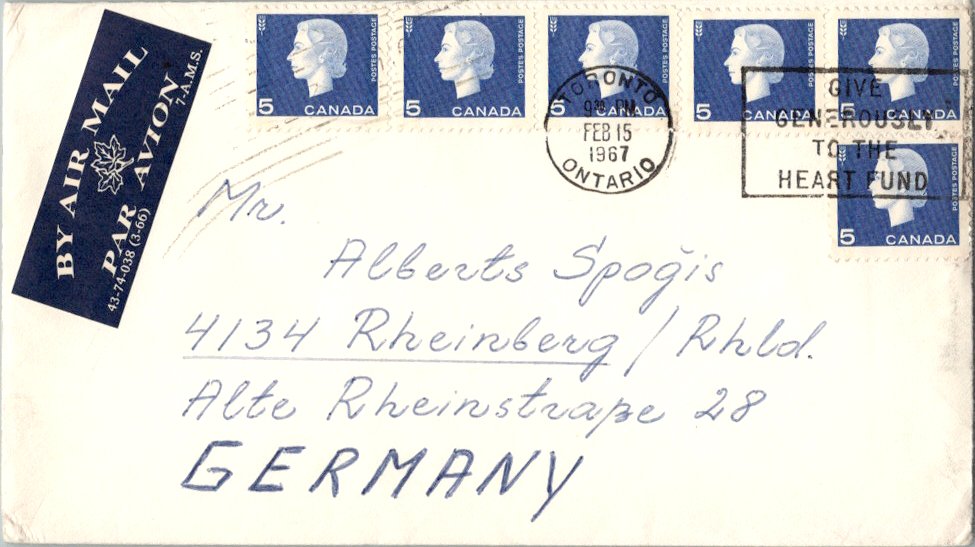 BY AIR MAIL
PAR AVION
43-74-038 (3-66)
7-A.M.S.
POSTES POSTAGE
5 CANADA
POSTES POSTAGE
5 CANADA
POSTES POSTAGE
5 CANADA
POSTES POSTAGE
5 CANADA
POSTES POSTAGE
5 CANADA
POSTES POSTAGE
5 CANADA
TORONTO
PM
FEB 15
1967
ONTARIO
GIVE
GENEROUSLY
TO THE
HEART FUND
Mr.
Alberts Spoģis
4134 Rheinberg / Rhld.
Alte Rheinstraße 28
GERMANY